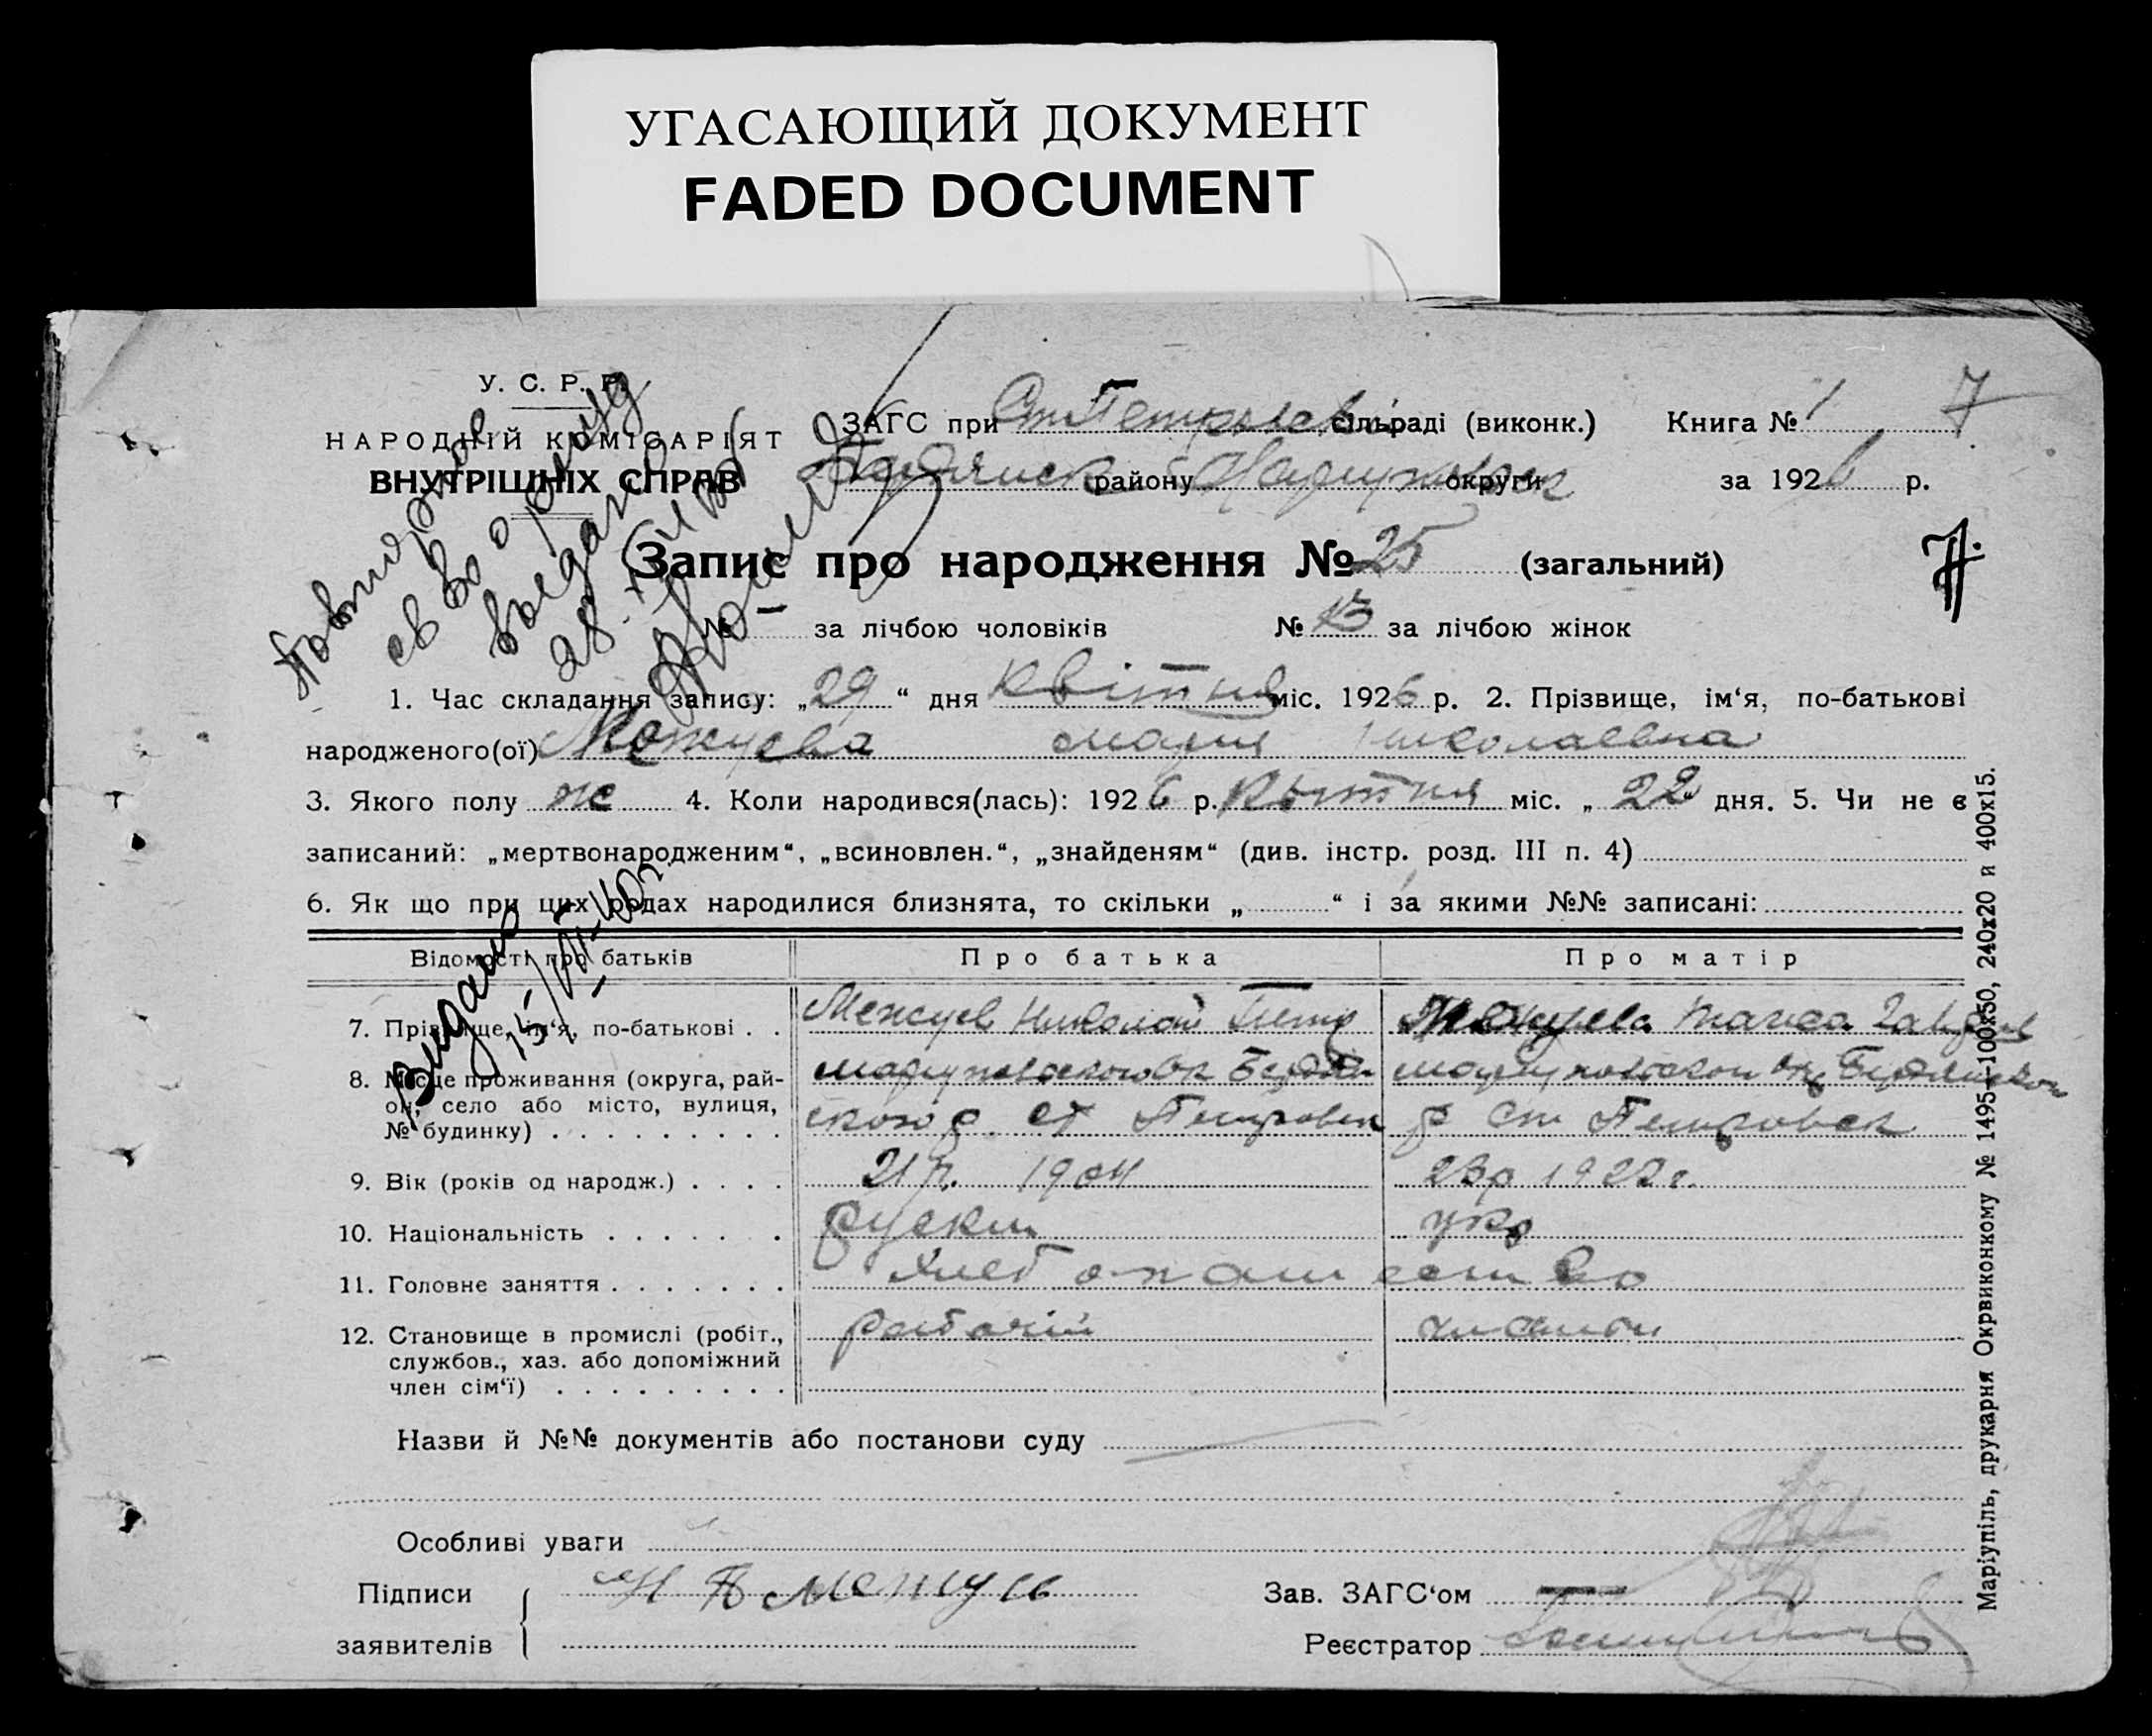 УГАСАЮЩИЙ ДОКУМЕНТ
FADED DOCUMENT
У. С. Р. Р.
НАРОДНІЙ КОМІСАРІЯТ
ВНУТРІШНІХ СПРАВ
ЗАГС при Ст Петрівській сільраді (виконк.) Книга № 1 7
району округи за 1926 р.
Запис про народження № 25 (загальний)
7.
№ — за лічбою чоловіків № 13 за лічбою жінок
Повторное
св во о рожд
выдано
1. Час складання запису: „29“ дня квітня міс. 1926 р. 2. Прізвище, ім‘я, по-батькові
народженого(ої) Межуева Мария Николаевна
3. Якого полу же 4. Коли народився(лась): 1926 р. Квитня міс. „22“ дня. 5. Чи не є
записаний: „мертвонародженим“, „всиновлен.“, „знайденям“ (див. інстр. розд. III п. 4)
6. Як що при цих родах народилися близнята, то скільки „ “ і за якими №№ записані:
Видано
15/VII-40г
Відомості про батьків Про батька Про матір
7. Прізвище, ім‘я, по-батькові . . Межуев Николай Петр Межуева
8. Місце проживання (округа, рай-
он, село або місто, вулиця,
№ будинку) . . . . . . . . . ского р. ст Петровск р Ст Петровск
9. Вік (років од народж.) . . . . 21 р. 1904 23р 1922г.
10. Національність . . . . . . . руским укр
11. Головне заняття . . . . . . . Хлебопашество
12. Становище в промислі (робіт., рабочій
службов., хаз. або допоміжний
член сім‘ї) . . . . . . . . .
Назви й №№ документів або постанови суду
Особливі уваги
Підписи Н П Межуев
заявителів
Зав. ЗАГС‘ом
Реєстратор
Маріупіль, друкарня Окрвиконкому № 1495—100х50, 240х20 и 400х15.